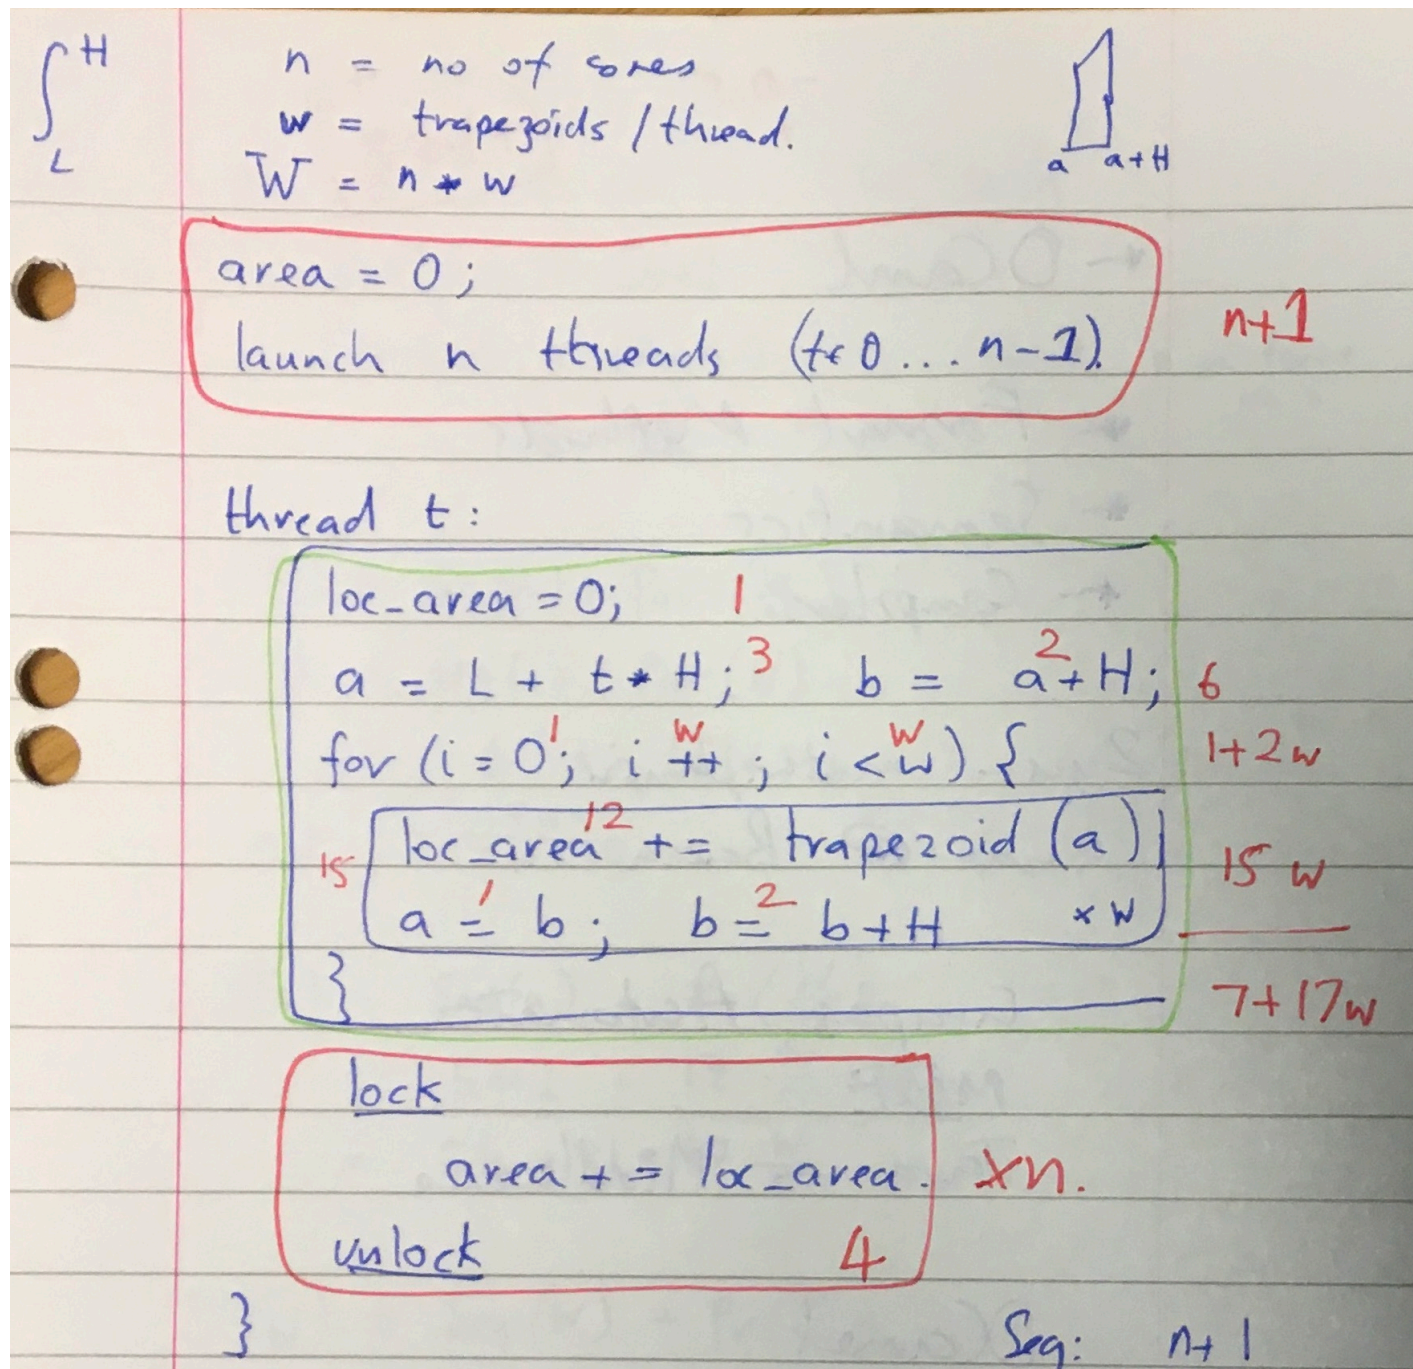 ∫ H L
n = no of cores
w = trapezoids / thread.
W = n * w
a a+H
area = 0;
launch n threads (t ∈ 0 ... n-1).
n+1
thread t:
loc_area = 0; 1
a = L + t * H; 3 b = a + H; 2 6
for (i = 0; 1 i ++ ; w i < w) { w 1+2w
15 loc_area += trapezoid (a) 12 15 w
a = b; 1 b = b + H 2 × w
} 7+17w
lock
area += loc_area. ×n.
unlock 4
}
Seq: n+1